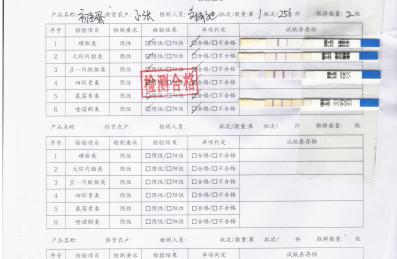 产品名称: 初生蛋 供货农户: 小张 检测人员: 批次/数量:第1批次/256件 取样数量:2处
序号 检验项目 检测要求 检验结果 单项判定 试纸条存档
1 磺胺类 阴性 ☑阴性/□阳性 ☑合格/□不合格
2 大环内酯类 阴性 ☑阴性/□阳性 ☑合格/□不合格
3 β-内酰胺类 阴性 ☑阴性/□阳性 ☑合格/□不合格
4 四环素类 阴性 ☑阴性/□阳性 ☑合格/□不合格
5 氯霉素类 阴性 ☑阴性/□阳性 ☑合格/□不合格
6 喹诺酮类 阴性 ☑阴性/□阳性 ☑合格/□不合格
检测合格
产品名称: 供货农户: 检测人员: 批次/数量:第 批次/ 件 取样数量: 处
序号 检验项目 检测要求 检验结果 单项判定 试纸条存档
1 磺胺类 阴性 □阴性/□阳性 □合格/□不合格
2 大环内酯类 阴性 □阴性/□阳性 □合格/□不合格
3 β-内酰胺类 阴性 □阴性/□阳性 □合格/□不合格
4 四环素类 阴性 □阴性/□阳性 □合格/□不合格
5 氯霉素类 阴性 □阴性/□阳性 □合格/□不合格
6 喹诺酮类 阴性 □阴性/□阳性 □合格/□不合格
产品名称: 供货农户: 检测人员: 批次/数量:第 批次/ 件 取样数量: 处
序号 检验项目 检测要求 检验结果 单项判定 试纸条存档